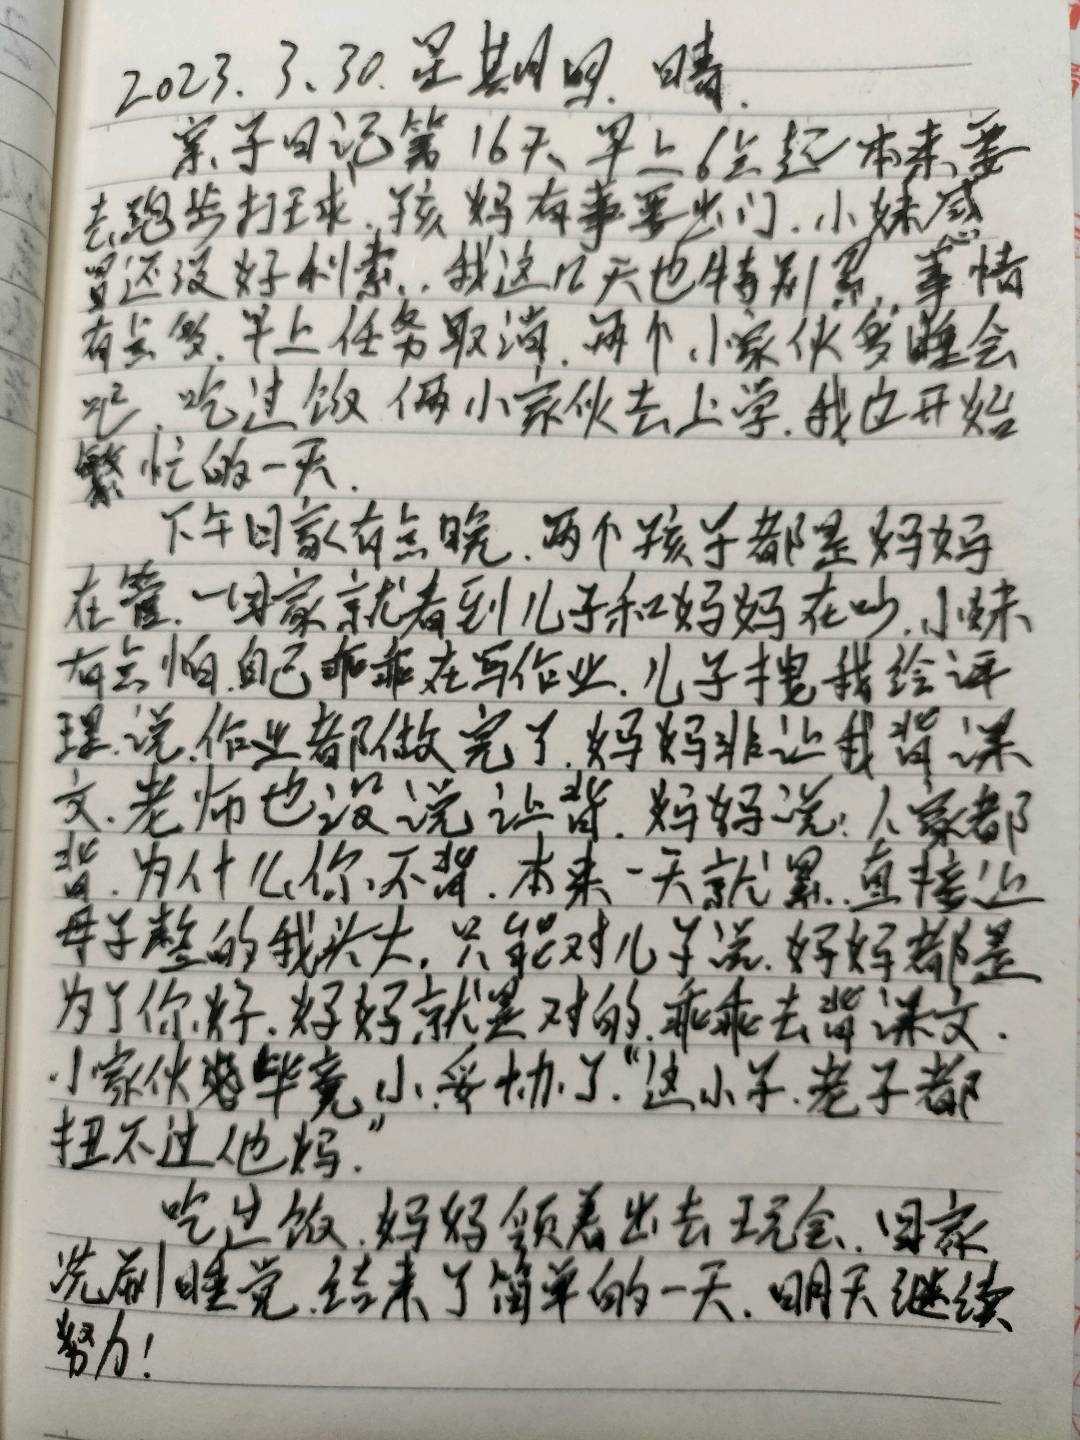 2023.3.30.星期四.晴.
亲子日记第16天、早上6点起本来要
去跑步打球.孩妈有事要出门.小妹感
冒还没好利索..我这几天也特别累.事情
有点多.早上任务取消.两个小家伙多睡会
吧.吃过饭俩小家伙去上学.我也开始
繁忙的一天.
下午回家有点晚.两个孩子都是妈妈
在管.一回家就看到儿子和妈妈在吵.小妹
有点怕.自己乖乖在写作业.儿子拽我给评
理.说.作业都做完了.妈妈非让我背课
文.老师也没说让背.妈妈说:人家都
背.为什么你不背.本来一天就累.直接这
母子整的我头大.只能对儿子说.妈妈都是
为了你好.妈妈就是对的.乖乖去背课文.
小家伙毕竟小.妥协了."这小子.老子都
扭不过他妈."
吃过饭.妈妈领着出去玩会.回家
洗刷睡觉.结束了简单的一天.明天继续
努力!